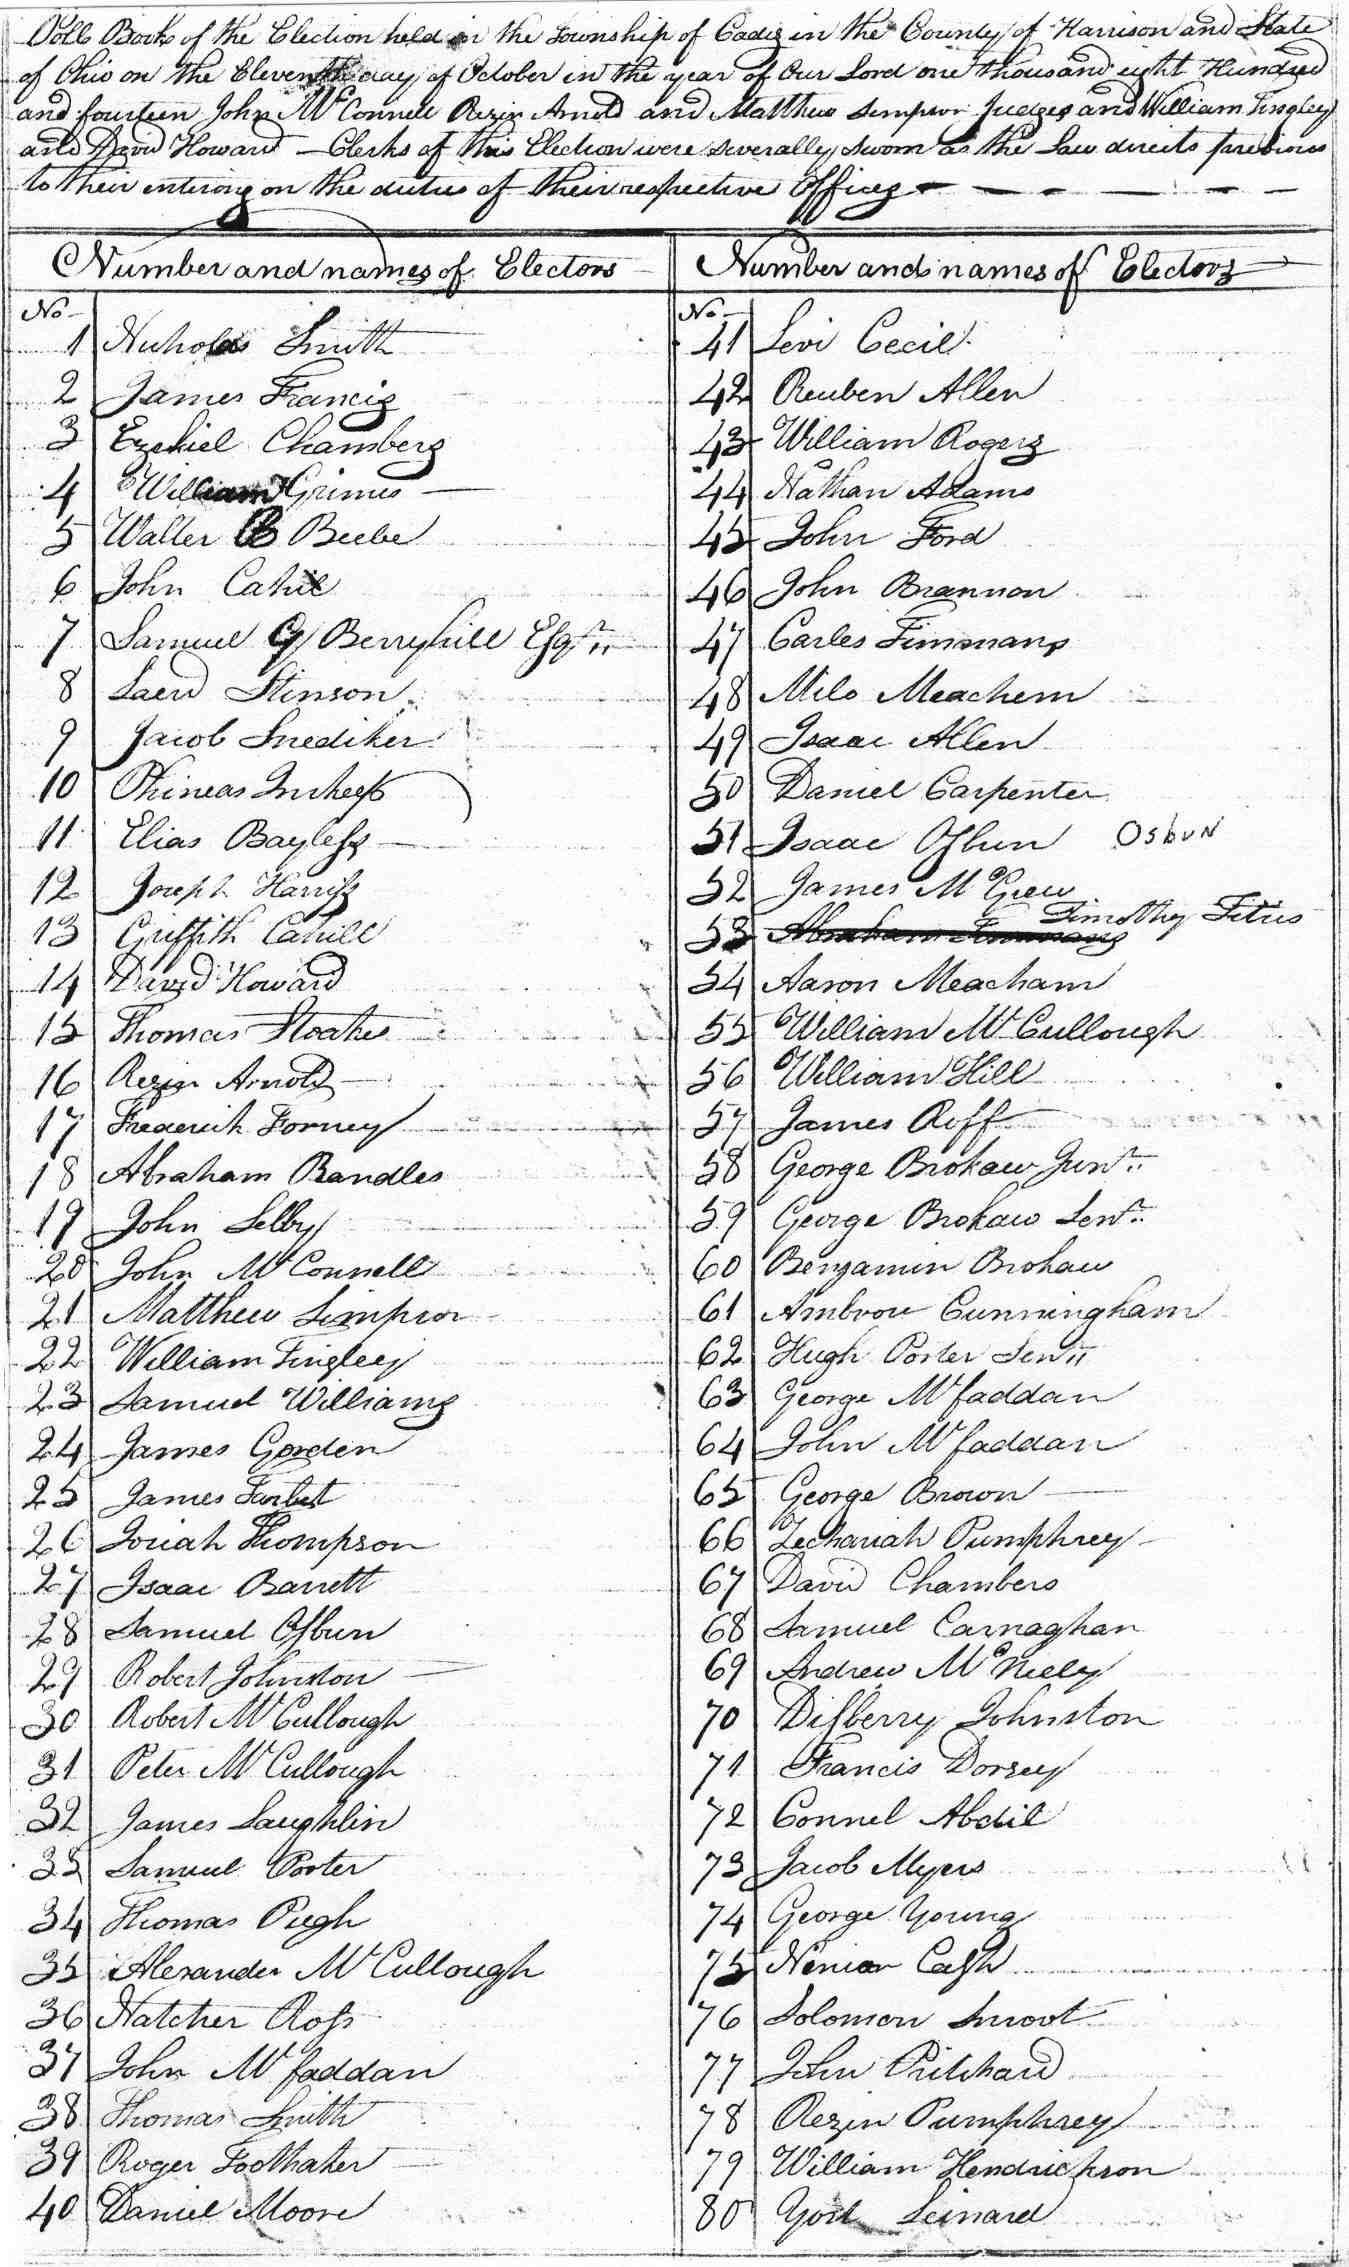 Poll Book of the Election held in the Township of Cadiz in the County of Harrison and State
of Ohio on the Eleventh day of October in the year of Our Lord one thousand eight Hundred
and fourteen John McConnell Rezin Arnold and Matthew Simpson Judges and William Tingley
and David Howard — Clerks of this Election were severally sworn as the Law directs previous
to their entiring on the duties of their respective Offices
Number and names of Electors
No
1 Nicholas Smith
2 James Francis
3 Ezekiel Chambers
4 William Grimes
5 Walter B Beebe
6 John Cahil
7 Samuel G Berryhill Esqr
8 Laird Stinson
9 Jacob Snediker
10 Phineas Inskeep
11 Elias Bayless
12 Joseph Harris
13 Griffith Cahill
14 David Howard
15 Thomas Stoakes
16 Rezin Arnold
17 Frederick Forney
18 Abraham Randles
19 John Selby
20 John McConnell
21 Matthew Simpson
22 William Tingley
23 Samuel Williams
24 James Gorden
25 James
26 Josiah Thompson
27 Isaac Barrett
28 Samuel Osbun
29 Robert Johnston
30 Robert McCullough
31 Peter McCullough
32 James Laughlin
33 Samuel Porter
34 Thomas Pugh
35 Alexander McCullough
36 Hatcher Ross
37 John Mcfaddan
38 Thomas Smith
39 Roger Toothaker
40 Daniel Moore
Number and names of Electors
No
41 Levi Cecil
42 Reuben Allen
43 William Rogers
44 Nathan Adams
45 John Ford
46 John Brannon
47 Carles Timmans
48 Milo Meachem
49 Isaac Allen
50 Daniel Carpenter
51 Isaac Osbun Osbun
52 James McGrew
53 Abraham Timmans Timothy Titus
54 Aaron Meacham
55 William McCullough
56 William Hill
57 James Roff
58 George Brokaw Junr
59 George Brokaw Senr
60 Benjamin Brokaw
61 Ambrose Cunningham
62 Hugh Porter Senr
63 George Mcfaddan
64 John Mcfaddan
65 George Brown
66 Zechariah Pumphrey
67 David Chambers
68 Samuel Carnaghan
69 Andrew McNeely
70 Disberry Johnston
71 Francis Dorsey
72 Connel Abdil
73 Jacob Myers
74 George Young
75 Ninian Cash
76 Solomon Smoot
77 John Pritchard
78 Rezin Pumphrey
79 William Hendrickson
80 Yost Leinard